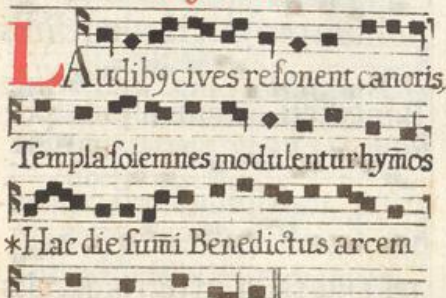 LAudibꝯ cives reſonent canoris,
Templa ſolemnes modulentur hym̄os
*Hac die ſum̄i Benedictus arcem